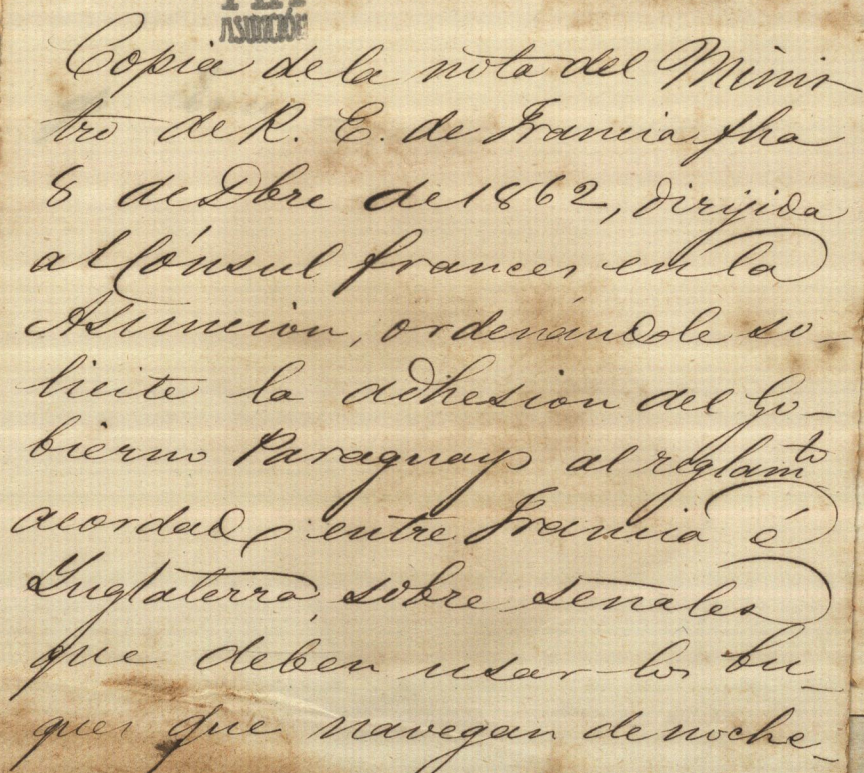 ASUNCIÓN
Copia de la nota del Minis-
tro de R. E. de Francia fha
8 de Dbre de 1862, dirijida
al Cónsul frances en la
Asuncion, ordenándole so-
licite la adhesion del Go-
bierno Paraguayo al reglamto
acordado entre Francia é
Inglaterra, sobre señales
que deben usar los bu-
ques que navegan de noche_